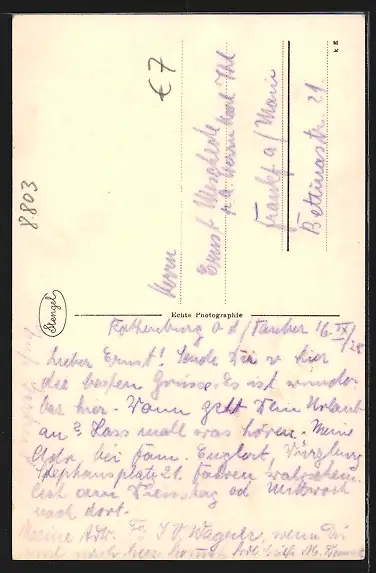 € 7
8803
Herrn
Ernst Meschede
p. a. Herrn Karl Ihl
Frankf a/Main
Bettinastr. 21.
Stengel
Echte Photographie
Rothenburg o d/Tauber 16. /28
Lieber Ernst! Sende Dir v hier
die besten Grüsse. Es ist wunder
bar hier. Wann geht Dein Urlaub
an? Lass mall was hören. Meine
Adr. bei Fam. Englert, Würzburg
Stephansplatz 21. Fahren warschein
lich am Dienstag od Mittwoch
nach dort.
Meine Adr. J. V. Wagner, wenn Du